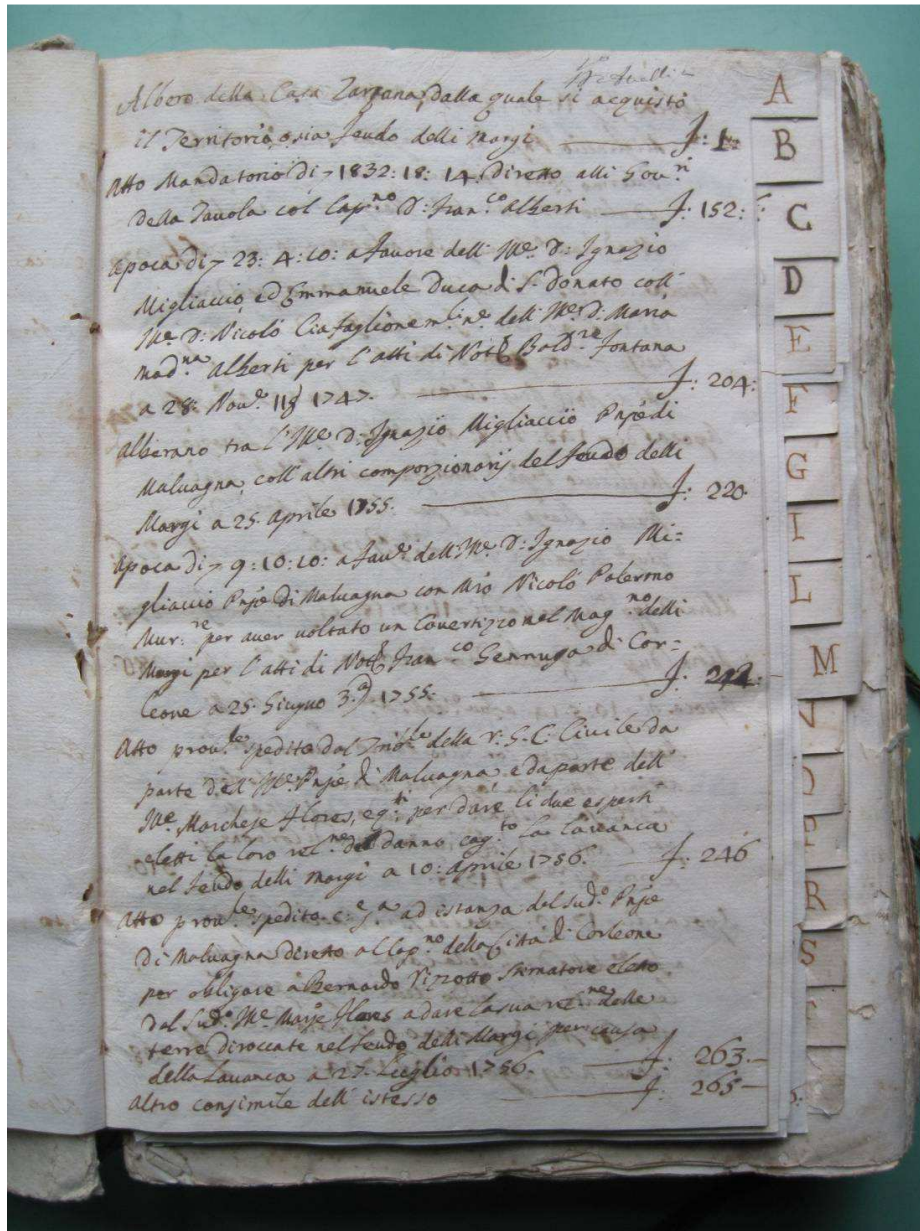 Albero della Casa Zarzana, dalla quale si acquistò
il Territorio, o sia feudo delli Margi f: 1:
Atto Mandatorio di 7 1832: 18: 14: diretto alli Gov.ri
della Tavola col Cap.no D: Fran.co Alberti f: 152:
Apoca di 7 23: 4: 10: a favore dell' Ill.e D: Ignazio
Migliaccio, ed Emmanuele Duca di S. Donato coll'
Ill.e D: Nicolò Ciafaglione dell' Ill.e D: Maria
Mad.na Alberti per l'atti di Not. Bald.re Fontana
a 28: Nov.e 11 1747. f: 204:
Alberano tra l'Ill.e D: Ignazio Migliaccio Pnpe di
Malvagna, coll' altri comporzionarij del feudo delli
Margi a 25. Aprile 1755. f: 220
Apoca di 7 9: 10: 10: a fav.e dell' Ill.e D: Ignazio Mi=
gliaccio Pnpe di Malvagna con Mro Nicolò Palermo
Mur.re per aver voltato un Covertizio nel Mag.no delli
Margi per l'atti di Not. Fran.co Gennuga di Cor=
leone a 25. Giugno 3. 1755: f: 242:
Atto prov.le spedito dal Trib.le della r: G: C: Civile da
parte dell' Ill.e Pnpe di Malvagna, e da parte dell'
Ill.e Marchese Flores, per dare li due esperti
eletti la loro rel.ne del danno cag.to la lavanca
nel feudo delli Margi a 10: Aprile 1756. f: 246
Atto prov.le spedito ad istanza del sud.o Pnpe
di Malvagna diretto al Cap.no della Città di Corleone
per obligare a Bernardo Vizzotto Stimatore eletto
dal Sud.o Ill.e Flores a dare la sua rel.ne delle
terre diroccate nel feudo delli Margi per causa
della Lavanca a 27. Luglio 1756. f: 263.
Altro consimile dell' istesso f: 265
A
B
C
D
E
F
G
I
L
M
N
O
P
R
S
T